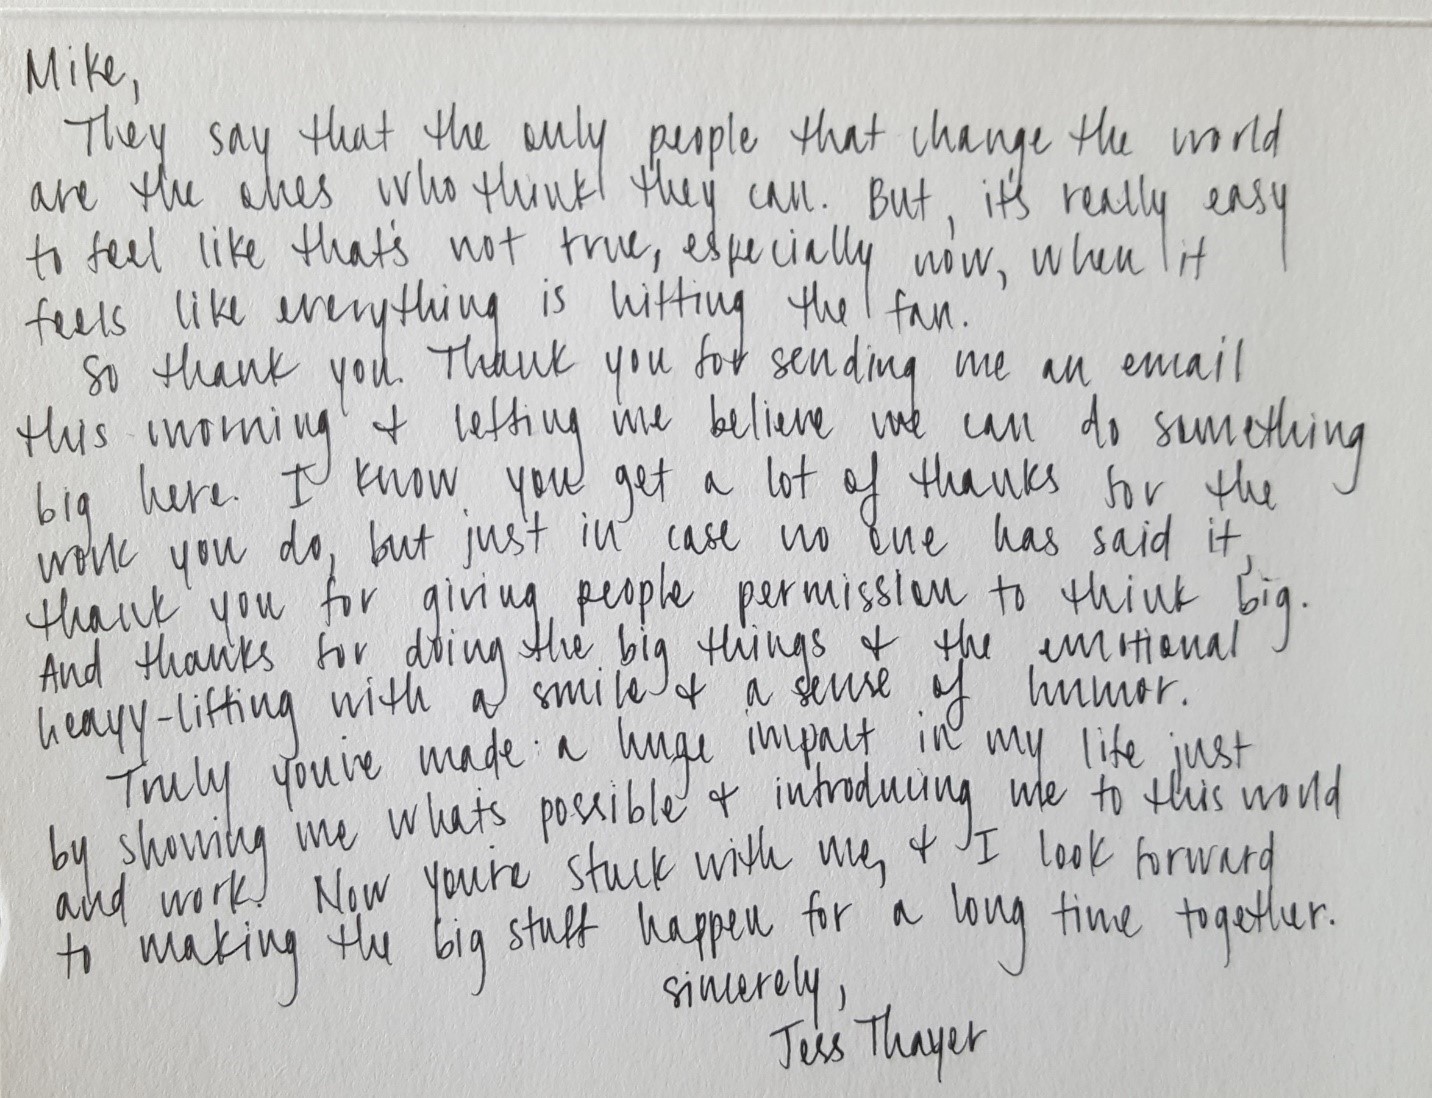 Mike,
They say that the only people that change the world
are the ones who think they can. But, it's really easy
to feel like that's not true, especially now, when it
feels like everything is hitting the fan.
So thank you. Thank you for sending me an email
this morning & letting me believe we can do something
big here. I know you get a lot of thanks for the
work you do, but just in case no one has said it,
thank you for giving people permission to think big.
And thanks for doing the big things & the emotional
heavy-lifting with a smile & a sense of humor.
Truly you've made a huge impact in my life just
by showing me what's possible & introducing me to this world
and work. Now you're stuck with me, & I look forward
to making the big stuff happen for a long time together.
sincerely,
Jess Thayer